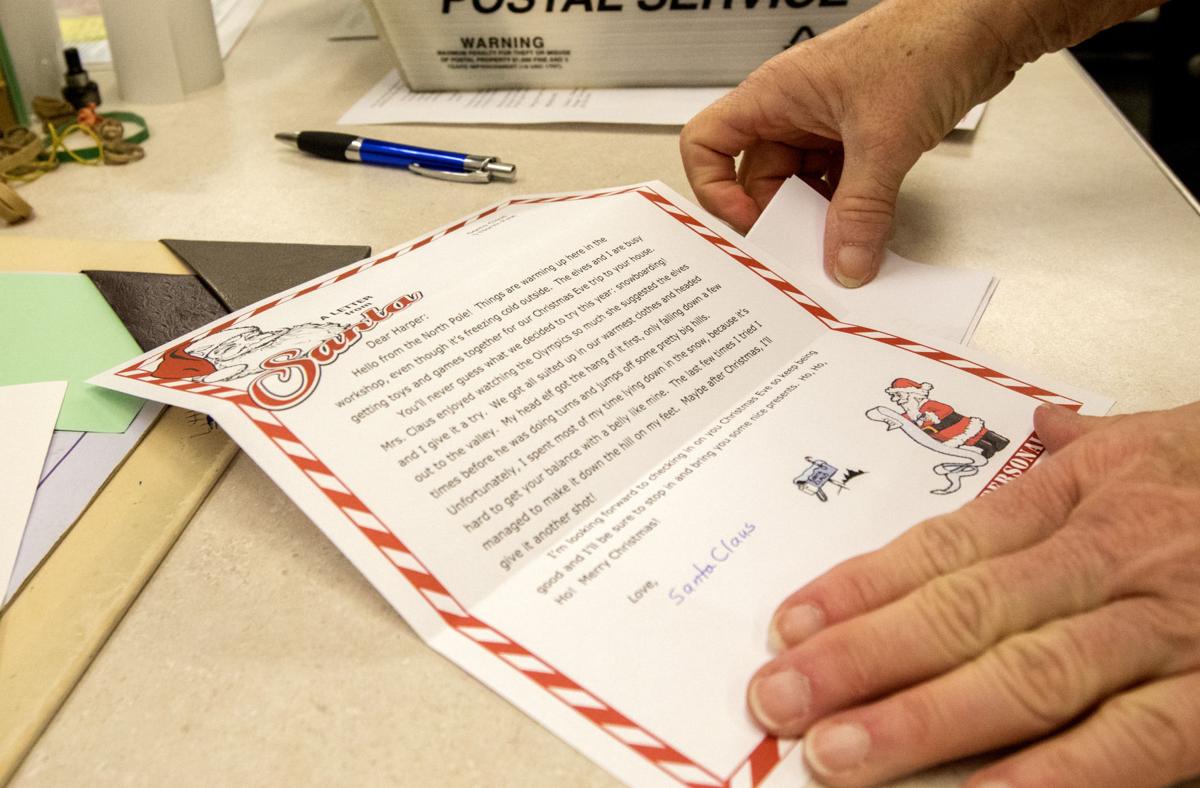 POSTAL SERVICE
WARNING
MAXIMUM PENALTY FOR THEFT OR MISUSE
OF POSTAL PROPERTY $1,000 FINE AND 3
YEARS IMPRISONMENT (18 USC 1707)
A LETTER
from
Santa
Dear Harper:
Hello from the North Pole! Things are warming up here in the
workshop, even though it's freezing cold outside. The elves and I are busy
getting toys and games together for our Christmas Eve trip to your house.
You'll never guess what we decided to try this year: snowboarding!
Mrs. Claus enjoyed watching the Olympics so much she suggested the elves
and I give it a try. We got all suited up in our warmest clothes and headed
out to the valley. My head elf got the hang of it first, only falling down a few
times before he was doing turns and jumps off some pretty big hills.
Unfortunately, I spent most of my time lying down in the snow, because it's
hard to get your balance with a belly like mine. The last few times I tried I
managed to make it down the hill on my feet. Maybe after Christmas, I'll
give it another shot!
I'm looking forward to checking in on you Christmas Eve so keep being
good and I'll be sure to stop in and bring you some nice presents. Ho, Ho,
Ho! Merry Christmas!
Love,
Santa Claus
PERSONA